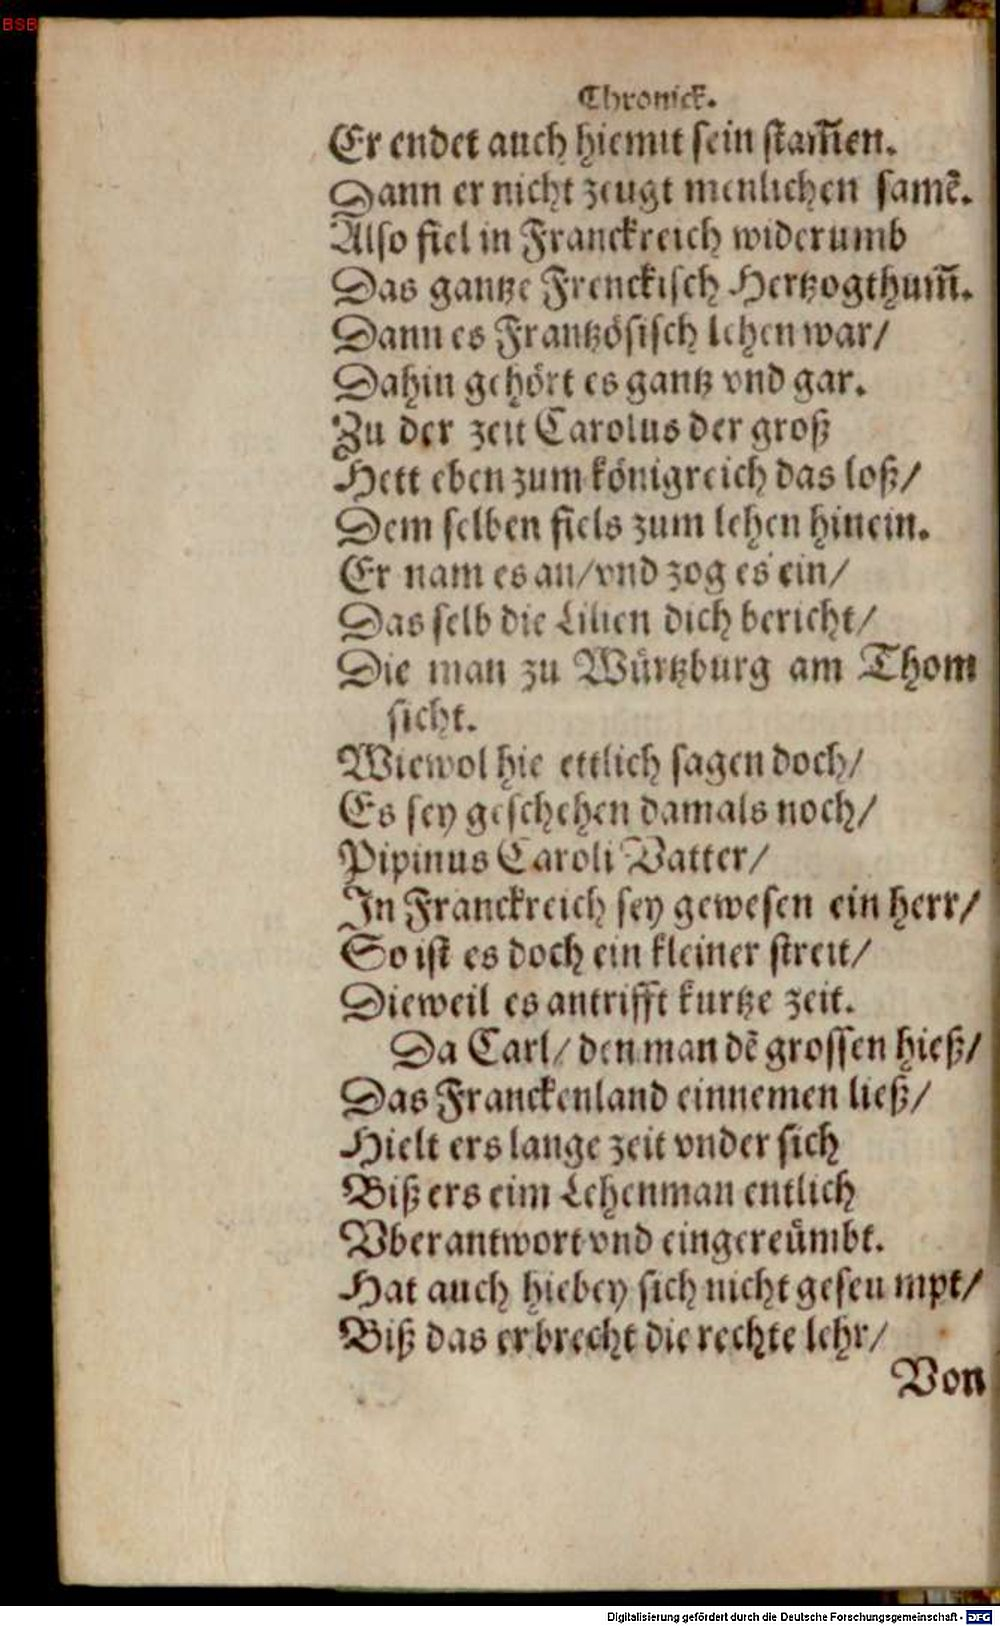 BSB
Chronick.
Er endet auch hiemit sein stam̄en.
Dann er nicht zeugt menlichen samẽ.
Also fiel in Franckreich widerumb
Das gantze Frenckisch Hertzogthum̄.
Dann es Frantzösisch lehen war/
Dahin gehört es gantz vnd gar.
Zu der zeit Carolus der groß
Hett eben zum königreich das loß/
Dem selben fiels zum lehen hinein.
Er nam es an/vnd zog es ein/
Das selb die Lilien dich bericht/
Die man zu Würtzburg am Thom
sicht.
Wiewol hie ettlich sagen doch/
Es sey geschehen damals noch/
Pipinus Caroli Vatter/
In Franckreich sey gewesen ein herr/
So ist es doch ein kleiner streit/
Dieweil es antrifft kurtze zeit.
Da Carl/ den man dẽ grossen hieß/
Das Franckenland einnemen ließ/
Hielt ers lange zeit vnder sich
Biß ers eim Lehenman entlich
Vberantwort vnd eingereümbt.
Hat auch hiebey sich nicht geseu mpt/
Biß das er brecht die rechte lehr/
Von
Digitalisierung gefördert durch die Deutsche Forschungsgemeinschaft - DFG